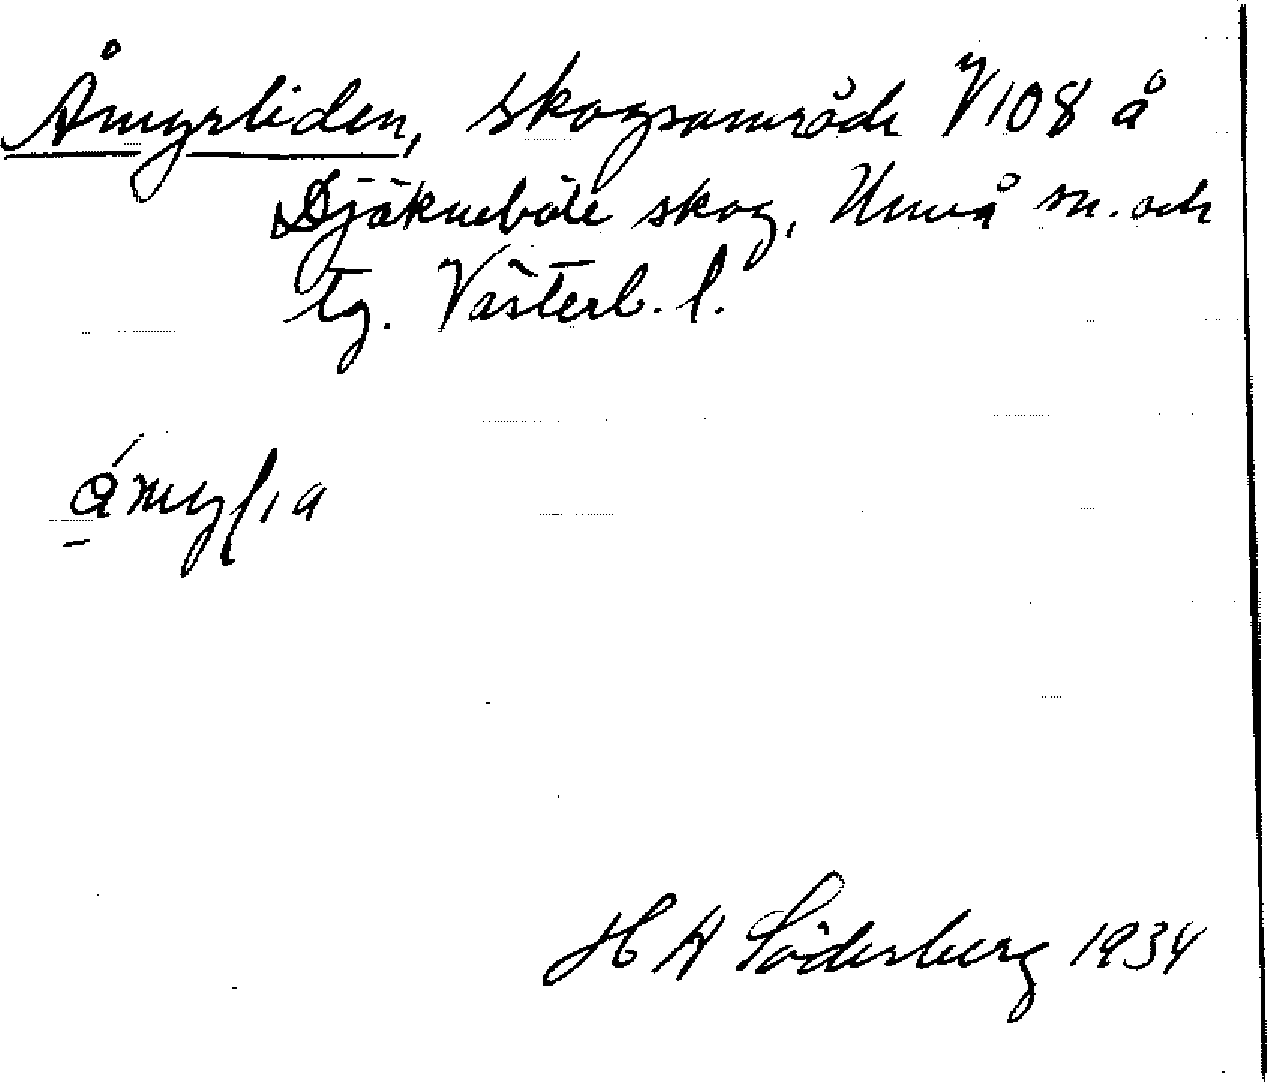 Åmyrliden, skogsområde V108 å
Djäkneböle skog, Umeå sn. och
tg. Västerb. l.
åmyrlia
H A Söderberg 1934